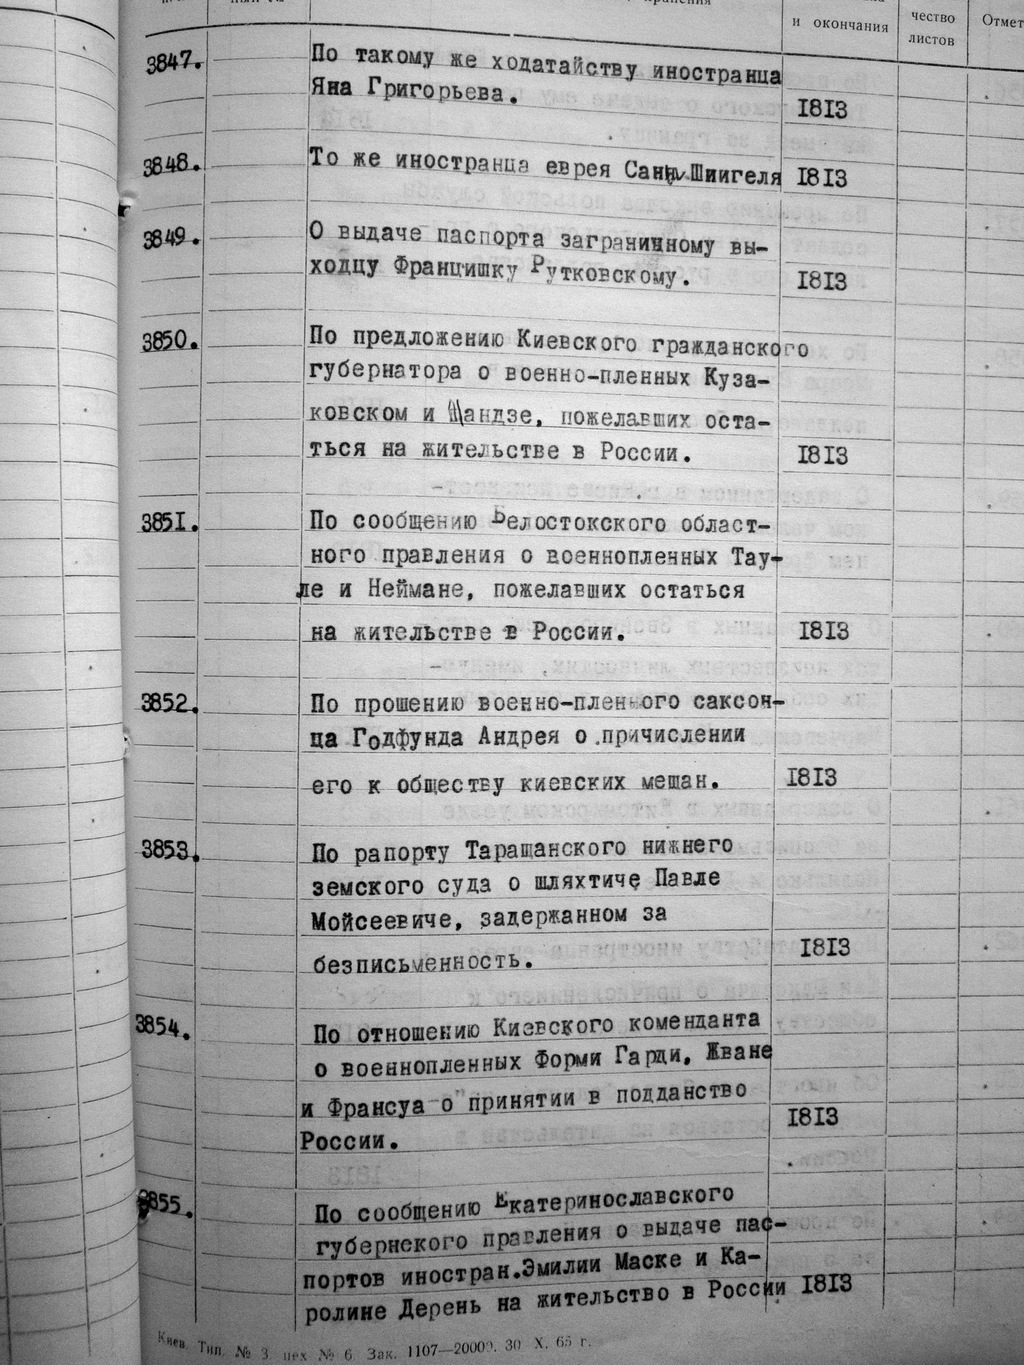 и окончания
чество
листов
Отмет
3847.
По такому же ходатайству иностранца
Яна Григорьева.
1813
3848.
То же иностранца еврея Шмигеля
1813
3849.
О выдаче паспорта заграничному вы-
ходцу Францишку Рутковскому.
1813
3850.
По предложению Киевского гражданского
губернатора о военно-пленных Куза-
ковском и Шандзе, пожелавших оста-
ться на жительстве в России.
1813
3851.
По сообщению Белостокского област-
ного правления о военнопленных Тау-
ле и Неймане, пожелавших остаться
на жительстве в России.
1813
3852.
По прошению военно-пленного саксон-
ца Годфунда Андрея о причислении
его к обществу киевских мещан.
1813
3853.
По рапорту Таращанского нижнего
земского суда о шляхтиче Павле
Мойсеевиче, задержанном за
безписьменность.
1813
3854.
По отношению Киевского коменданта
о военнопленных Форми Гарди, Жване
и Франсуа о принятии в подданство
России.
1813
3855.
По сообщению Екатеринославского
губернского правления о выдаче пас-
портов иностран.Эмилии Маске и Ка-
ролине Дерень на жительство в России
1813
Киев. Тип. № 3 цех № 6. Зак. 1107—20000. 30 X. 65 г.